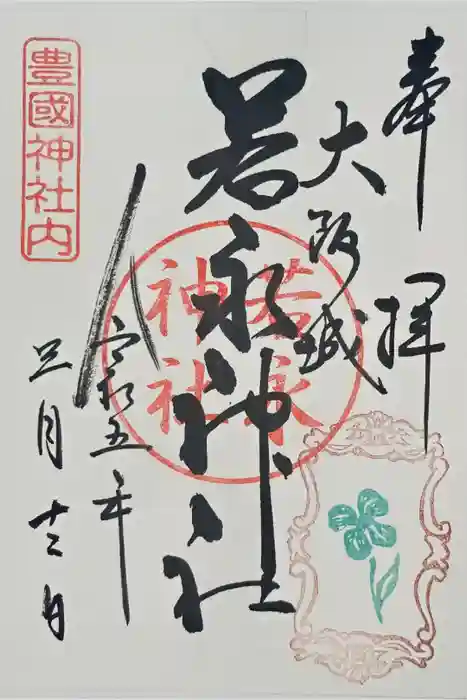 奉拝
大阪城
若永神社
若永
神社
令和五年
三月十二日
豊國神社内